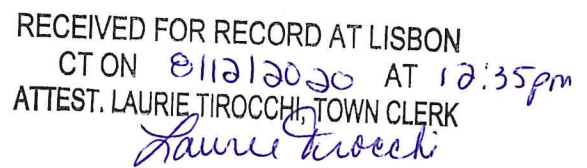 RECEIVED FOR RECORD AT LISBON
CT ON 8/12/2020 AT 12:35pm
ATTEST. LAURIE TIROCCHI, TOWN CLERK
Laurie Tirocchi